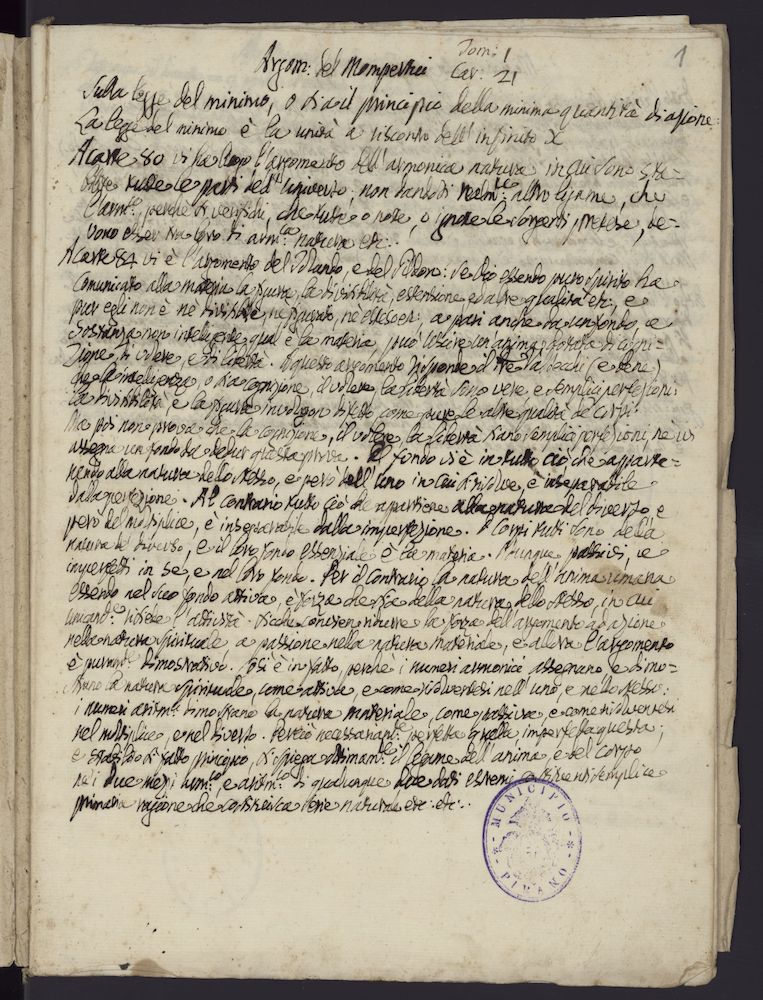 1
Argom: del Mompertui
Tom: 1
Car: 21
Sulla legge del minimo, o sia il principio della minima quantità di azione.
La legge del minimo è la unità a riscontro dell'infinito X
A carte 80 vi ha luogo l'argomento dell'armonica natura in cui sono
tutte le parti dell'universo, non dandosi altro legame, che
l'arm: perche si verifichi, che tutte o note, o ignote le
vono esser tra loro di arm:ca natura etc:
A carte 84 vi è l'argomento del e del : Se Dio essendo puro spirito ha
comunicato alla materia la figura, la divisibilità, estensione ed altre qualità etc, e
pur egli non è nè divisibile, ne figurato, nè esteso etc: a pari anche da un fondo, e
sostanza non inteligente, qual è la materia, può uscire un'anima dotata di cogni-
zione, di volere, e di libertà. A questo argomento risponde il (e bene)
che la inteligenza, o sia cognizione, il volere, la libertà sono vere, e semplici perfezioni:
la divisibilità, e la figura involgon difetto come pure le altre qualità de' corpi.
Ma poi non prova che la cognizione, il volere, la libertà siano semplici perfezioni, nè vi
assegna un fondo da dedur questa prova. Il fondo vi è in tutto ciò che apparte-
nendo alla natura dello stesso, e però dell'uno in cui si risolve, è inseparabile
dalla perfezione. Al contrario tutto ciò che apartiene alla natura del diverso, e
però del moltiplice, è inseparabile dalla imperfezione. I corpi tutti sono della
natura del diverso, e il loro fondo essenziale è la materia. Dunque passivi, e
imperfetti in se, e nel loro fondo. Per il contrario la natura dell'anima umana
essendo nel suo fondo attiva, è forza che sia della natura dello stesso, in cui
unicam:e risiede l'attività. Sicche convien ridurre la forza dell'argomento ad azione
nella natura spirituale, a passione nella natura materiale, e allora l'argomento
è dimostrativo. Così è in fatto, perche i numeri armonici assegnano, e dimo-
strano la natura spirituale, come attiva, e come risolventesi nell'uno, e nello stesso:
i numeri aritm:ci dimostrano la natura materiale, come passiva, e come risolventesi
nel moltiplice, e nel diverso. Perciò necessariam:e perfetta quella, imperfetta questa;
e si spiega ottimam:te il legame dell'anima, e del corpo
ne' i due mezi arm:co, e aritm:co di qualunque due dati estremi costituenti semplice
primaria ragione che costituisca bene natura etc: etc:.
MUNICIPIO
PIRANO